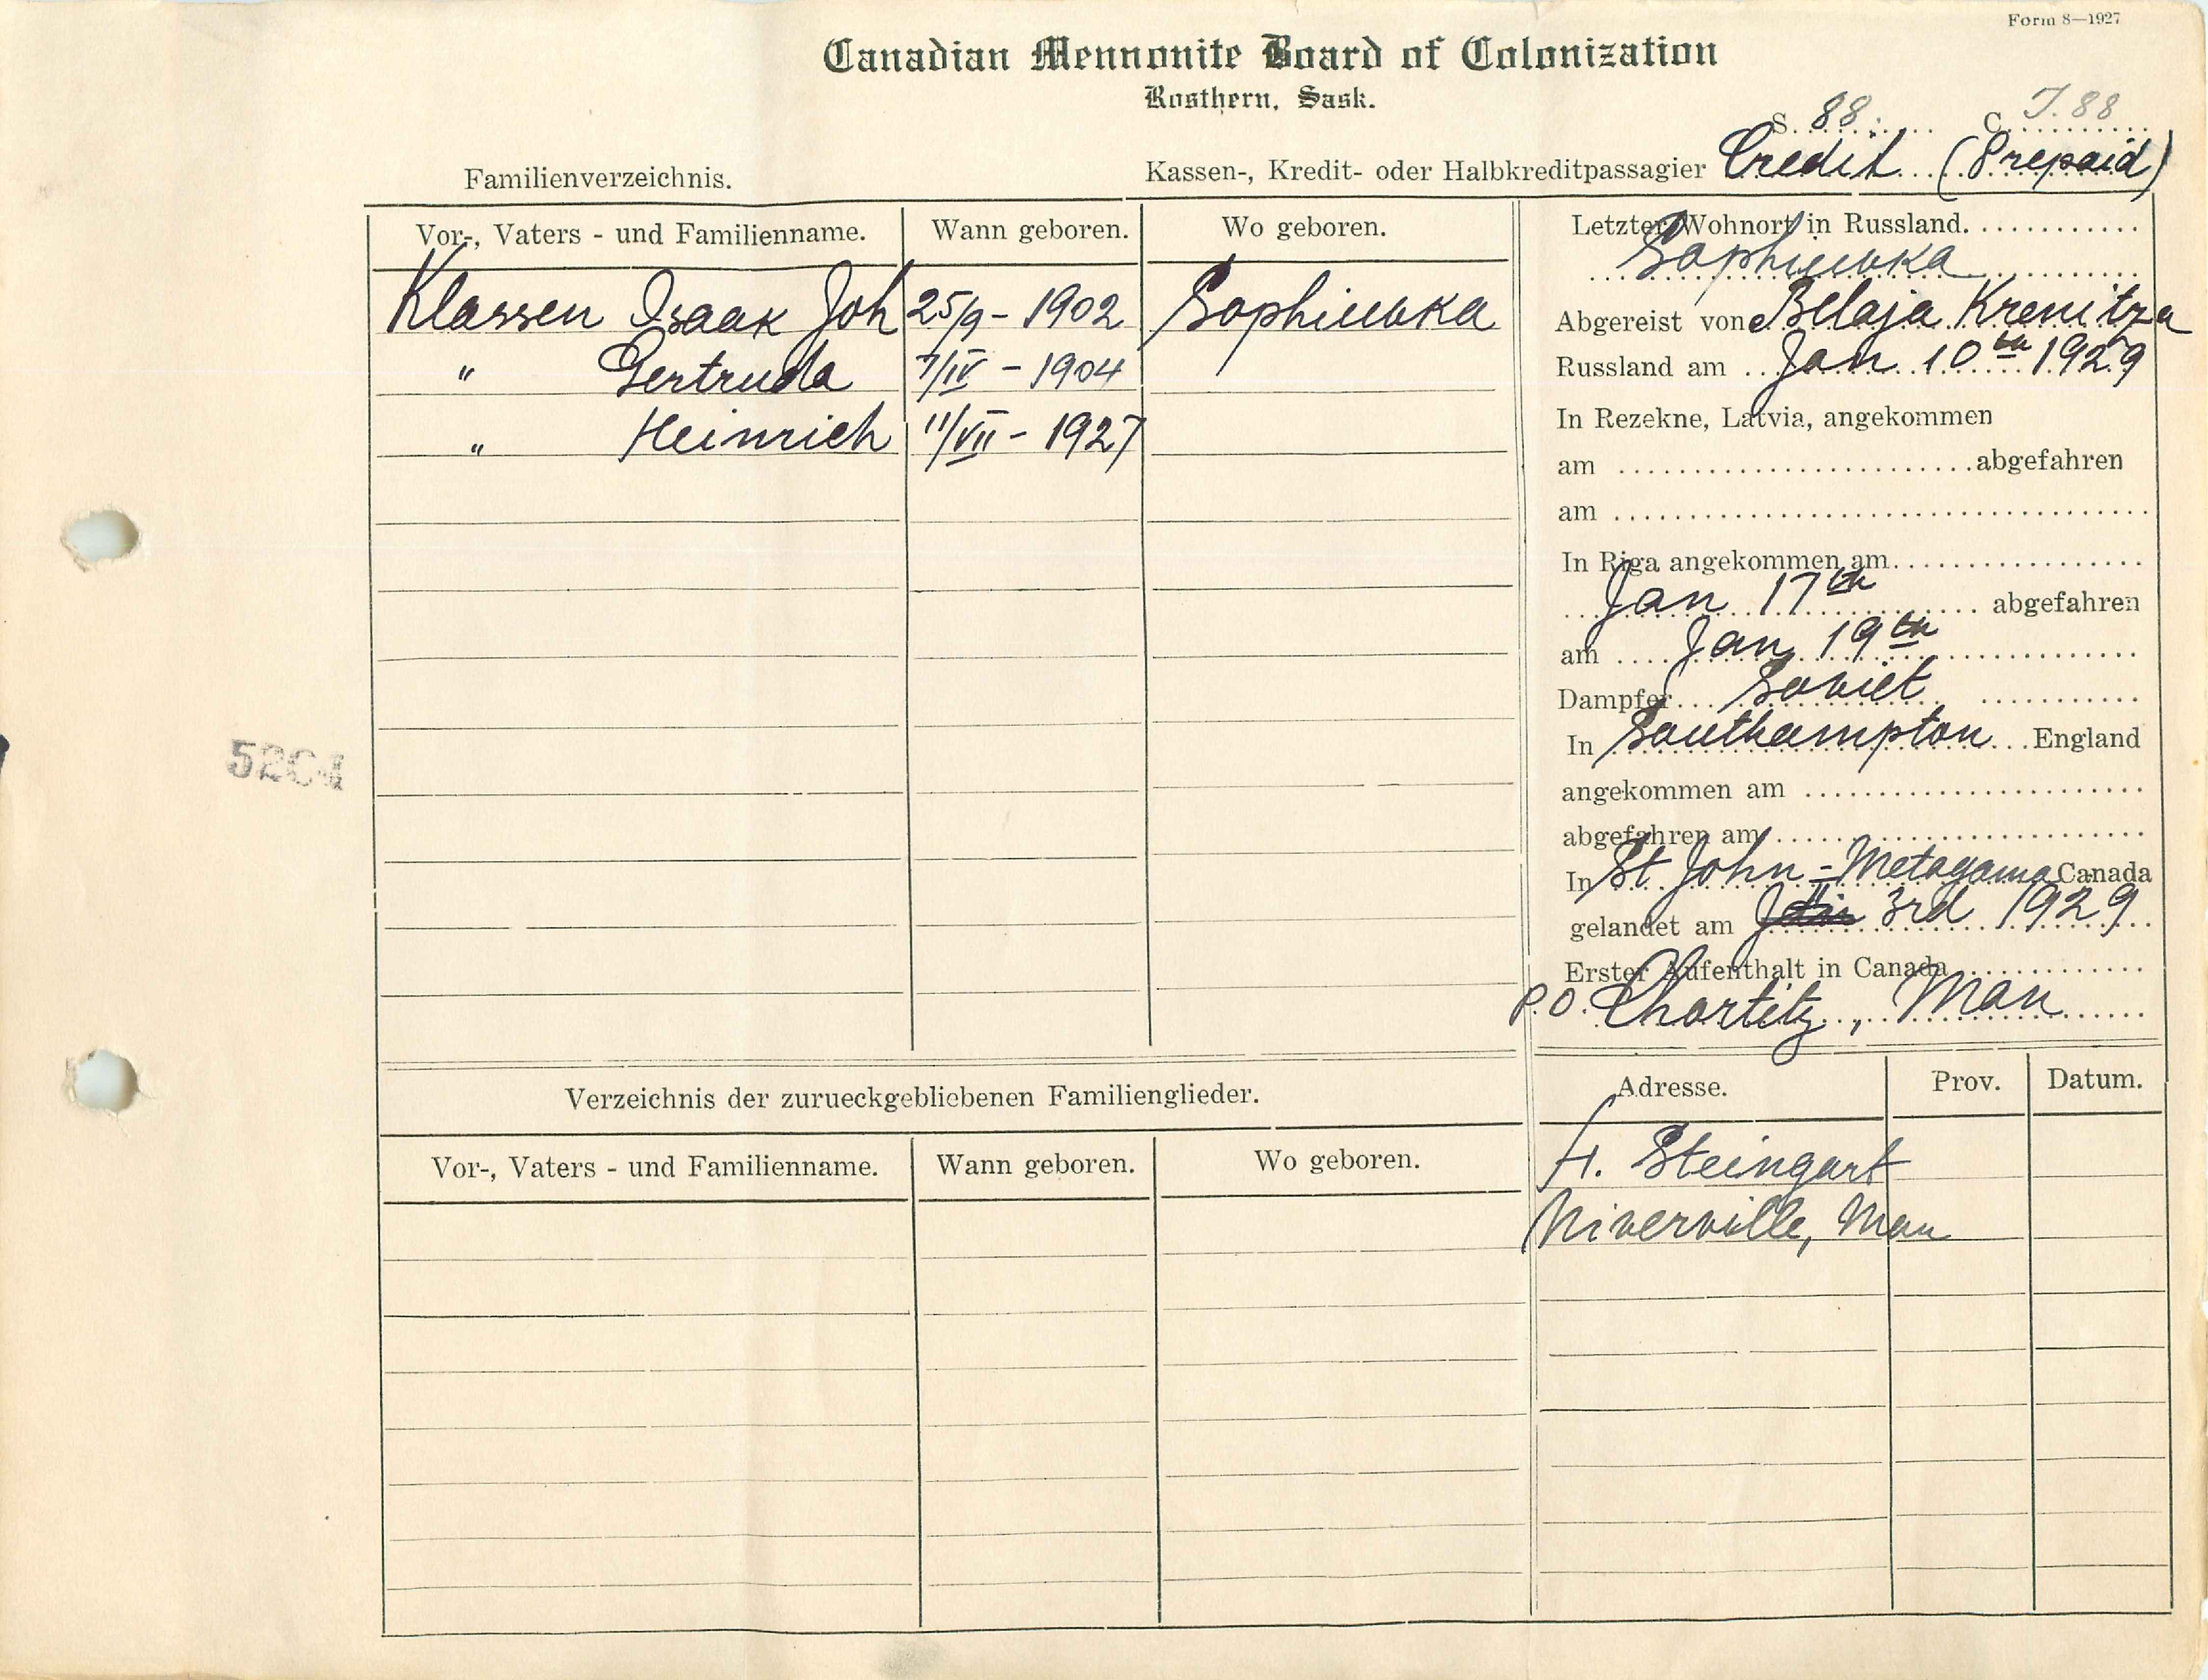 Form 8—1927
Canadian Mennonite Board of Colonization
Rosthern, Sask.
S. 88. C. J. 88
Familienverzeichnis.
Kassen-, Kredit- oder Halbkreditpassagier Credit (Prepaid)
Vor-, Vaters - und Familienname. Wann geboren. Wo geboren.
Klassen Isaak Joh 25/9 - 1902 Sophiewka
" Gertruda 7/IV - 1904 /
" Heinrich 11/VII - 1927
Letzter Wohnort in Russland.
Sophiewka
Abgereist von Belaja Krenitza
Russland am Jan 10th 1929
In Rezekne, Latvia, angekommen
am abgefahren
am
In Riga angekommen am
Jan 17th abgefahren
am Jan 19th
Dampfer Soviet
In Southampton England
angekommen am
abgefahren am
In St John - Metagama Canada
gelandet am 3rd 1929
Erster Aufenthalt in Canada
P.O. Chortitz, Man
5204
Verzeichnis der zurueckgebliebenen Familienglieder.
Vor-, Vaters - und Familienname. Wann geboren. Wo geboren.
Adresse. Prov. Datum.
H. Steingart
Niverville, Man